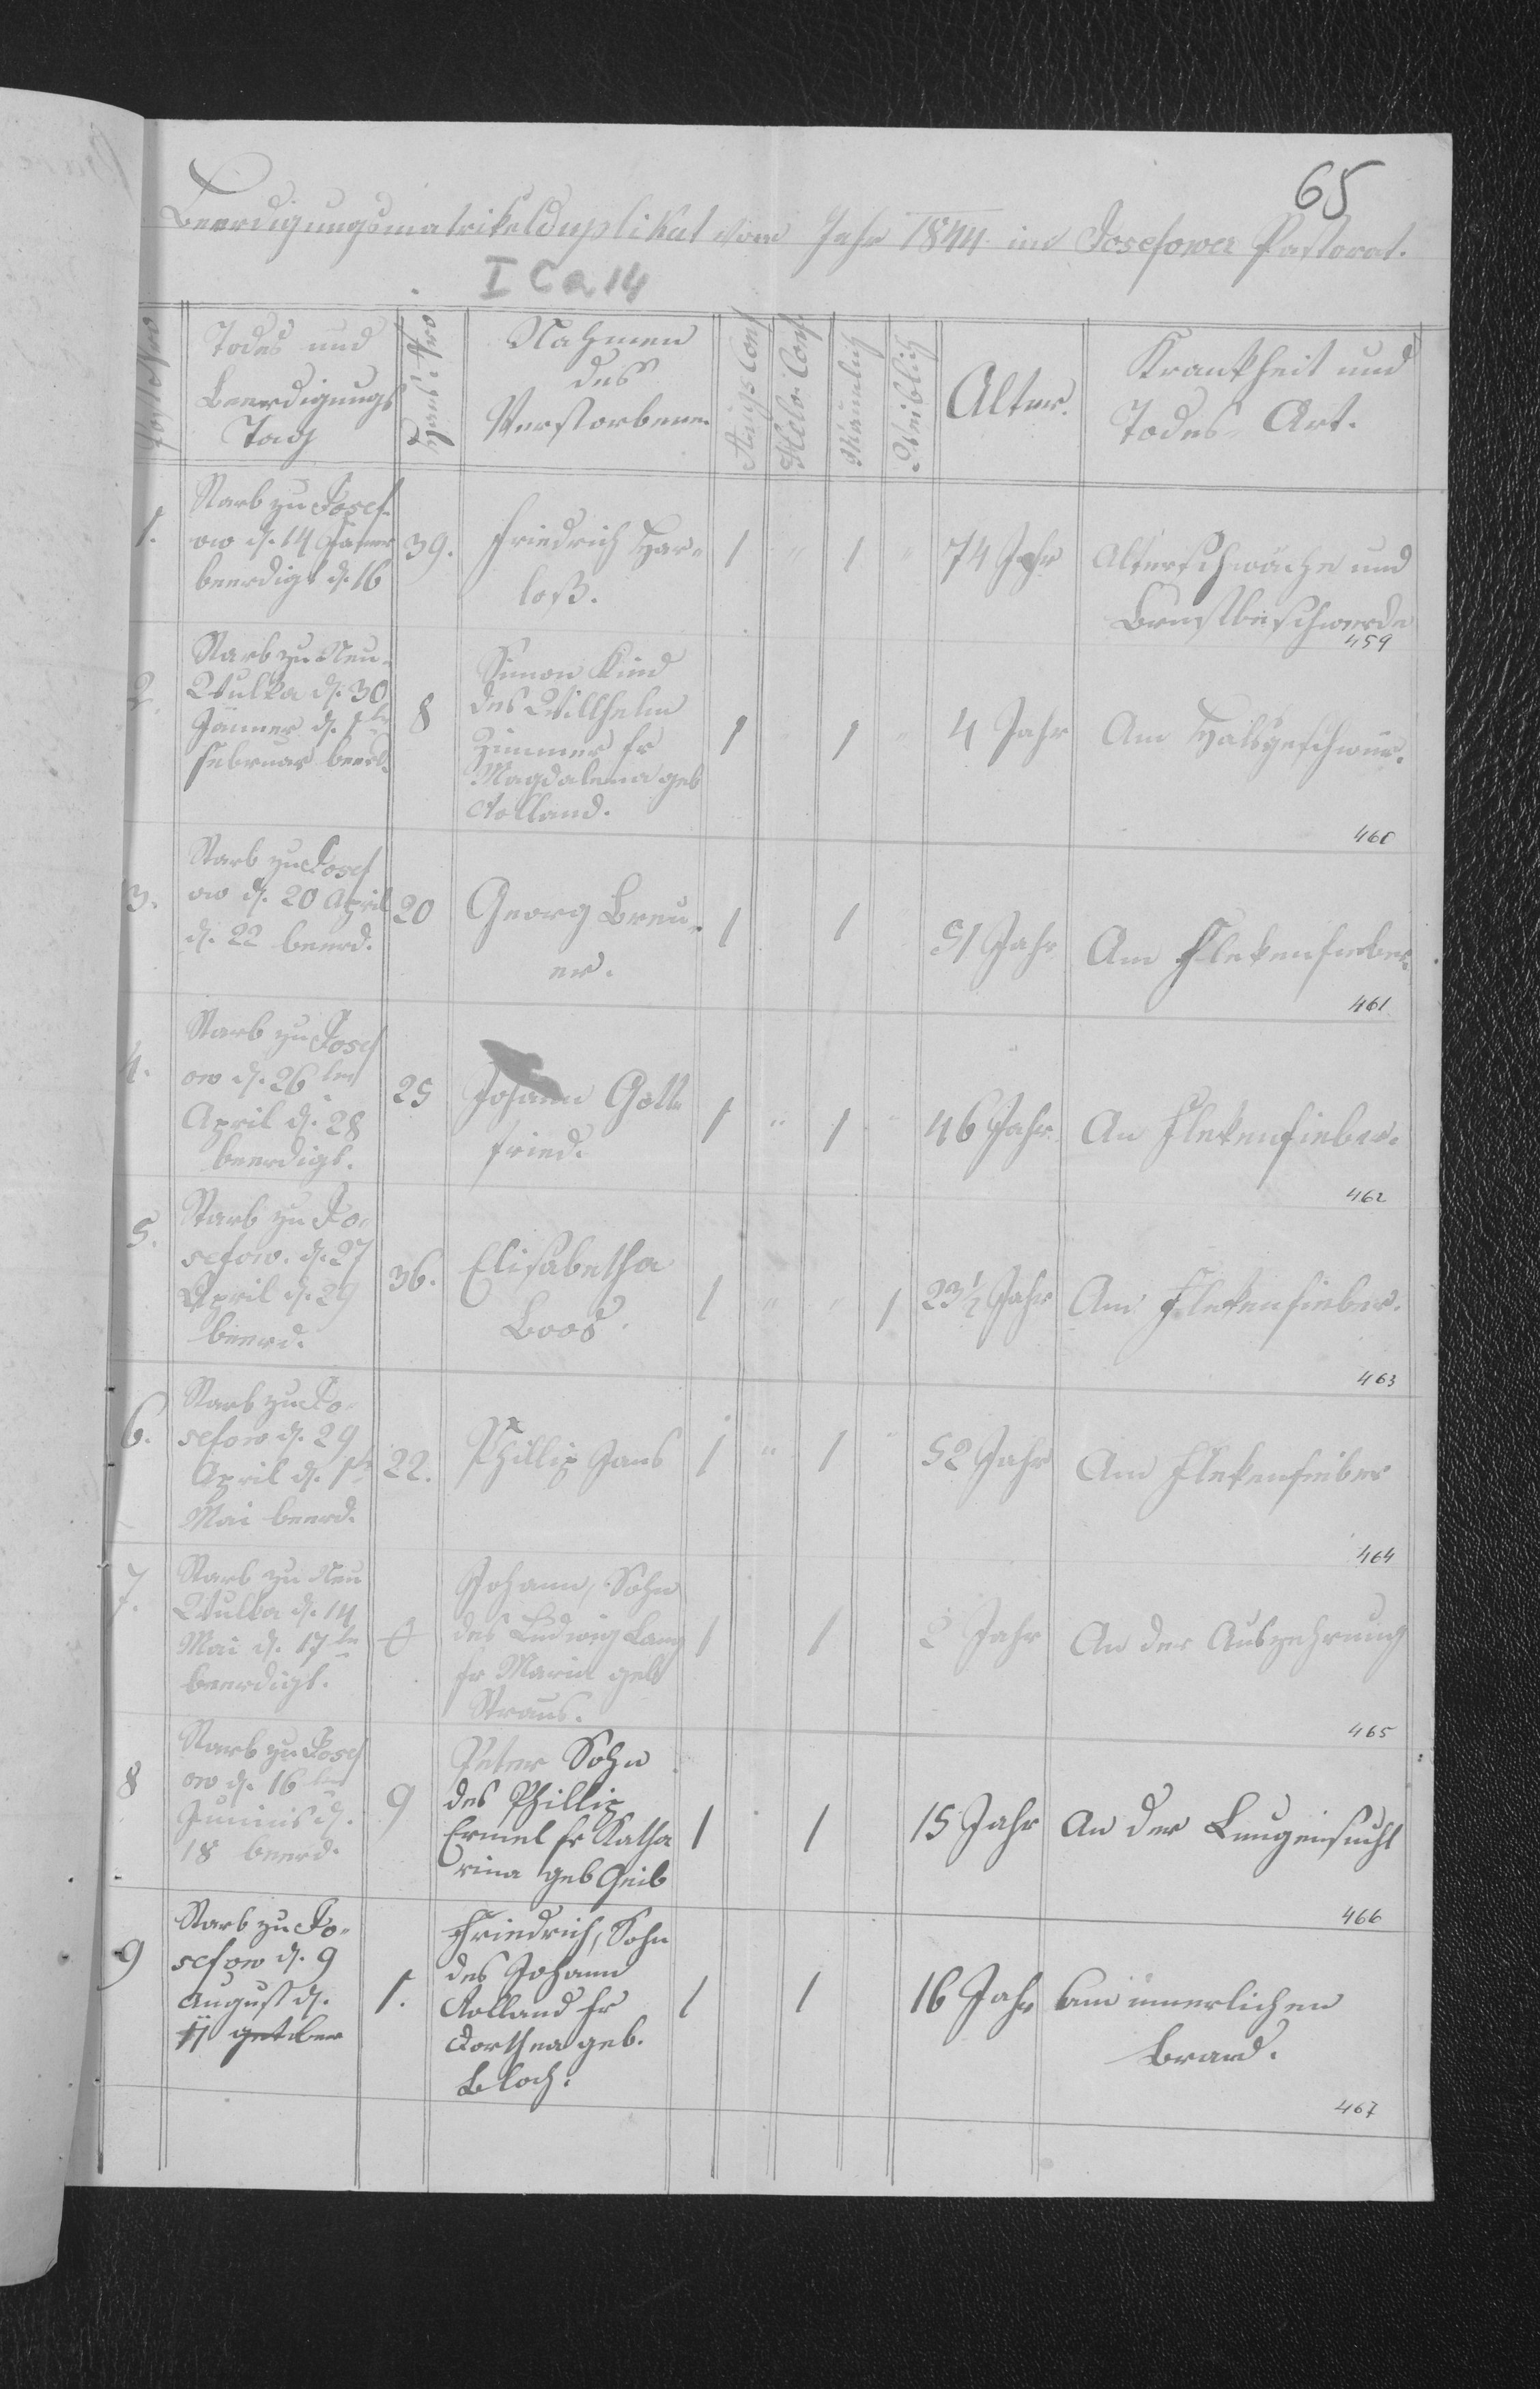 65
Beerdigungsmatrikelduplikat vom Jahr 1844 im Josefower Pastorat.
I C a 14
Post Nro
Todes und
Beerdigungs
Tag
Haus: Nro
Nahmen
des
Verstorbenen
Augs Conf
Helv. Conf.
Männlich
Weiblich
Alter.
Krankheit und
Todes Art.
1.
Starb zu Josef-
ow d. 14 Jäner
beerdigt d. 16
39.
Friedrich Har-
loß.
1 " 1 "
74 Jahr
Altersschwäche und
Brustbeschwerde
459
2.
Starb zu Neu-
Wulka d. 30
Jänner d. 1ten
Februar beerd.
8
Simon Kind
des Willhelm
Zimmer fr
Magdalena geb
Rolland.
1 " 1 "
4 Jahr
Am Halsgeschwür.
460
3.
Starb zu Josef
ow d. 20 April
d. 22 beerd.
20
Georg Breu-
er.
1 1
51 Jahr
Am Flekenfieber.
461
4.
Starb zu Josef
ow d. 26ten
April d. 28
beerdigt.
25
Johann Gott-
fried.
1 " 1 "
46 Jahr
An Flekenfieber.
462
5.
Starb zu Jo-
sefow. d. 27
April d. 29
beerd.
36.
Elisabetha
Boos.
1 " " 1
23 1/2 Jahr
Am Flekenfieber.
463
6.
Starb zu Jo-
sefow d. 29
April d. 1ten
Mai beerd.
22.
Phillip Jans
1 " 1 "
52 Jahr
Am Flekenfieber
464
7.
Starb zu Neu
Wulka d. 14
Mai d. 17ten
beerdigt.
Johann, Sohn
des Ludwig Lang
fr Maria geb
Straus.
1 1
2 Jahr
An der Auszehrung
465
8
Starb zu Josef
ow d. 16ten
Juninis d.
18 beerd.
9
Peter Sohn
des Phillip
Ermel fr Katha
rina geb Geib
1 1
15 Jahr
An der Lungensucht
466
9
Starb zu Jo-
sefow d. 9
August d.
11
1.
Friedrich, Sohn
des Johann
Rolland fr
Dorthea geb.
Bloch.
1 1
16 Jahr
am innerlichen
Brand.
467